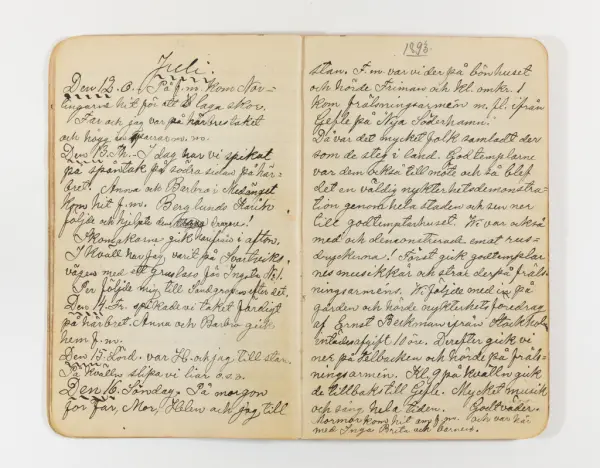 Juli.
Den 12. O. På f.m. kom Nor-
lingarne hit för att laga skor.
Far och jag var på härbrestaket
och högg in sparrar m. m.
Den 13. Th. I dag har vi spikat
på spåntak på södra sidan på här-
bret. Anna och Barbro i Medänget
kom hit f.m. Berglunds Karin
följde och hjelpte dem
Skomakarne gick härifrån i afton.
I kväll har jag varit på Svartviks-
vägen med ett gruslass för Ingsta N:1.
Per följde mig till Sandgropen efter det.
Den 14. Fr. spikade vi taket färdigt
på härbret. Anna och Barbro gick
hem f.m.
Den 15. Lörd. var Hb. och jag till stan.
På kvällen slipa vi liar o.s.v.
Den 16. Söndag. På morgon
for Far, Mor, Helen och jag till
1893
stan. F.m. var vi der på bönhuset
och hörde Friman och kl. omkr. 1
kom frälsningsarmeén m. fl. ifrån
Gefle på Nya Söderhamn.
Då var det mycket folk samladt der
som de steg i land. Godtemplarne
var dem också till möte och så blef
det en väldig nykterhetsdemonstra-
tion genom hela staden och sen ner
till godtemplarhuset. Vi var också
med och demonstrerade emot rus-
dryckerna! Först gick godtemplar-
nes musikkår och strax derpå fräls-
ningsarmeéns. Vi följde med in på
gården och hörde nykterhetsforedrag
af Ernst Beckman ifrån Stockholm
inträdsafgift 10 öre. Derefter gick vi
ner på telbacken och hörde på fräls-
ningsarmén. Kl. 9 på kvällen gick
de tillbaks till Gefle. Mycket musik
och sang hela tiden. Godt väder.
Mormor kom hit am f.m. och var här
med Inga Brita och barnen.